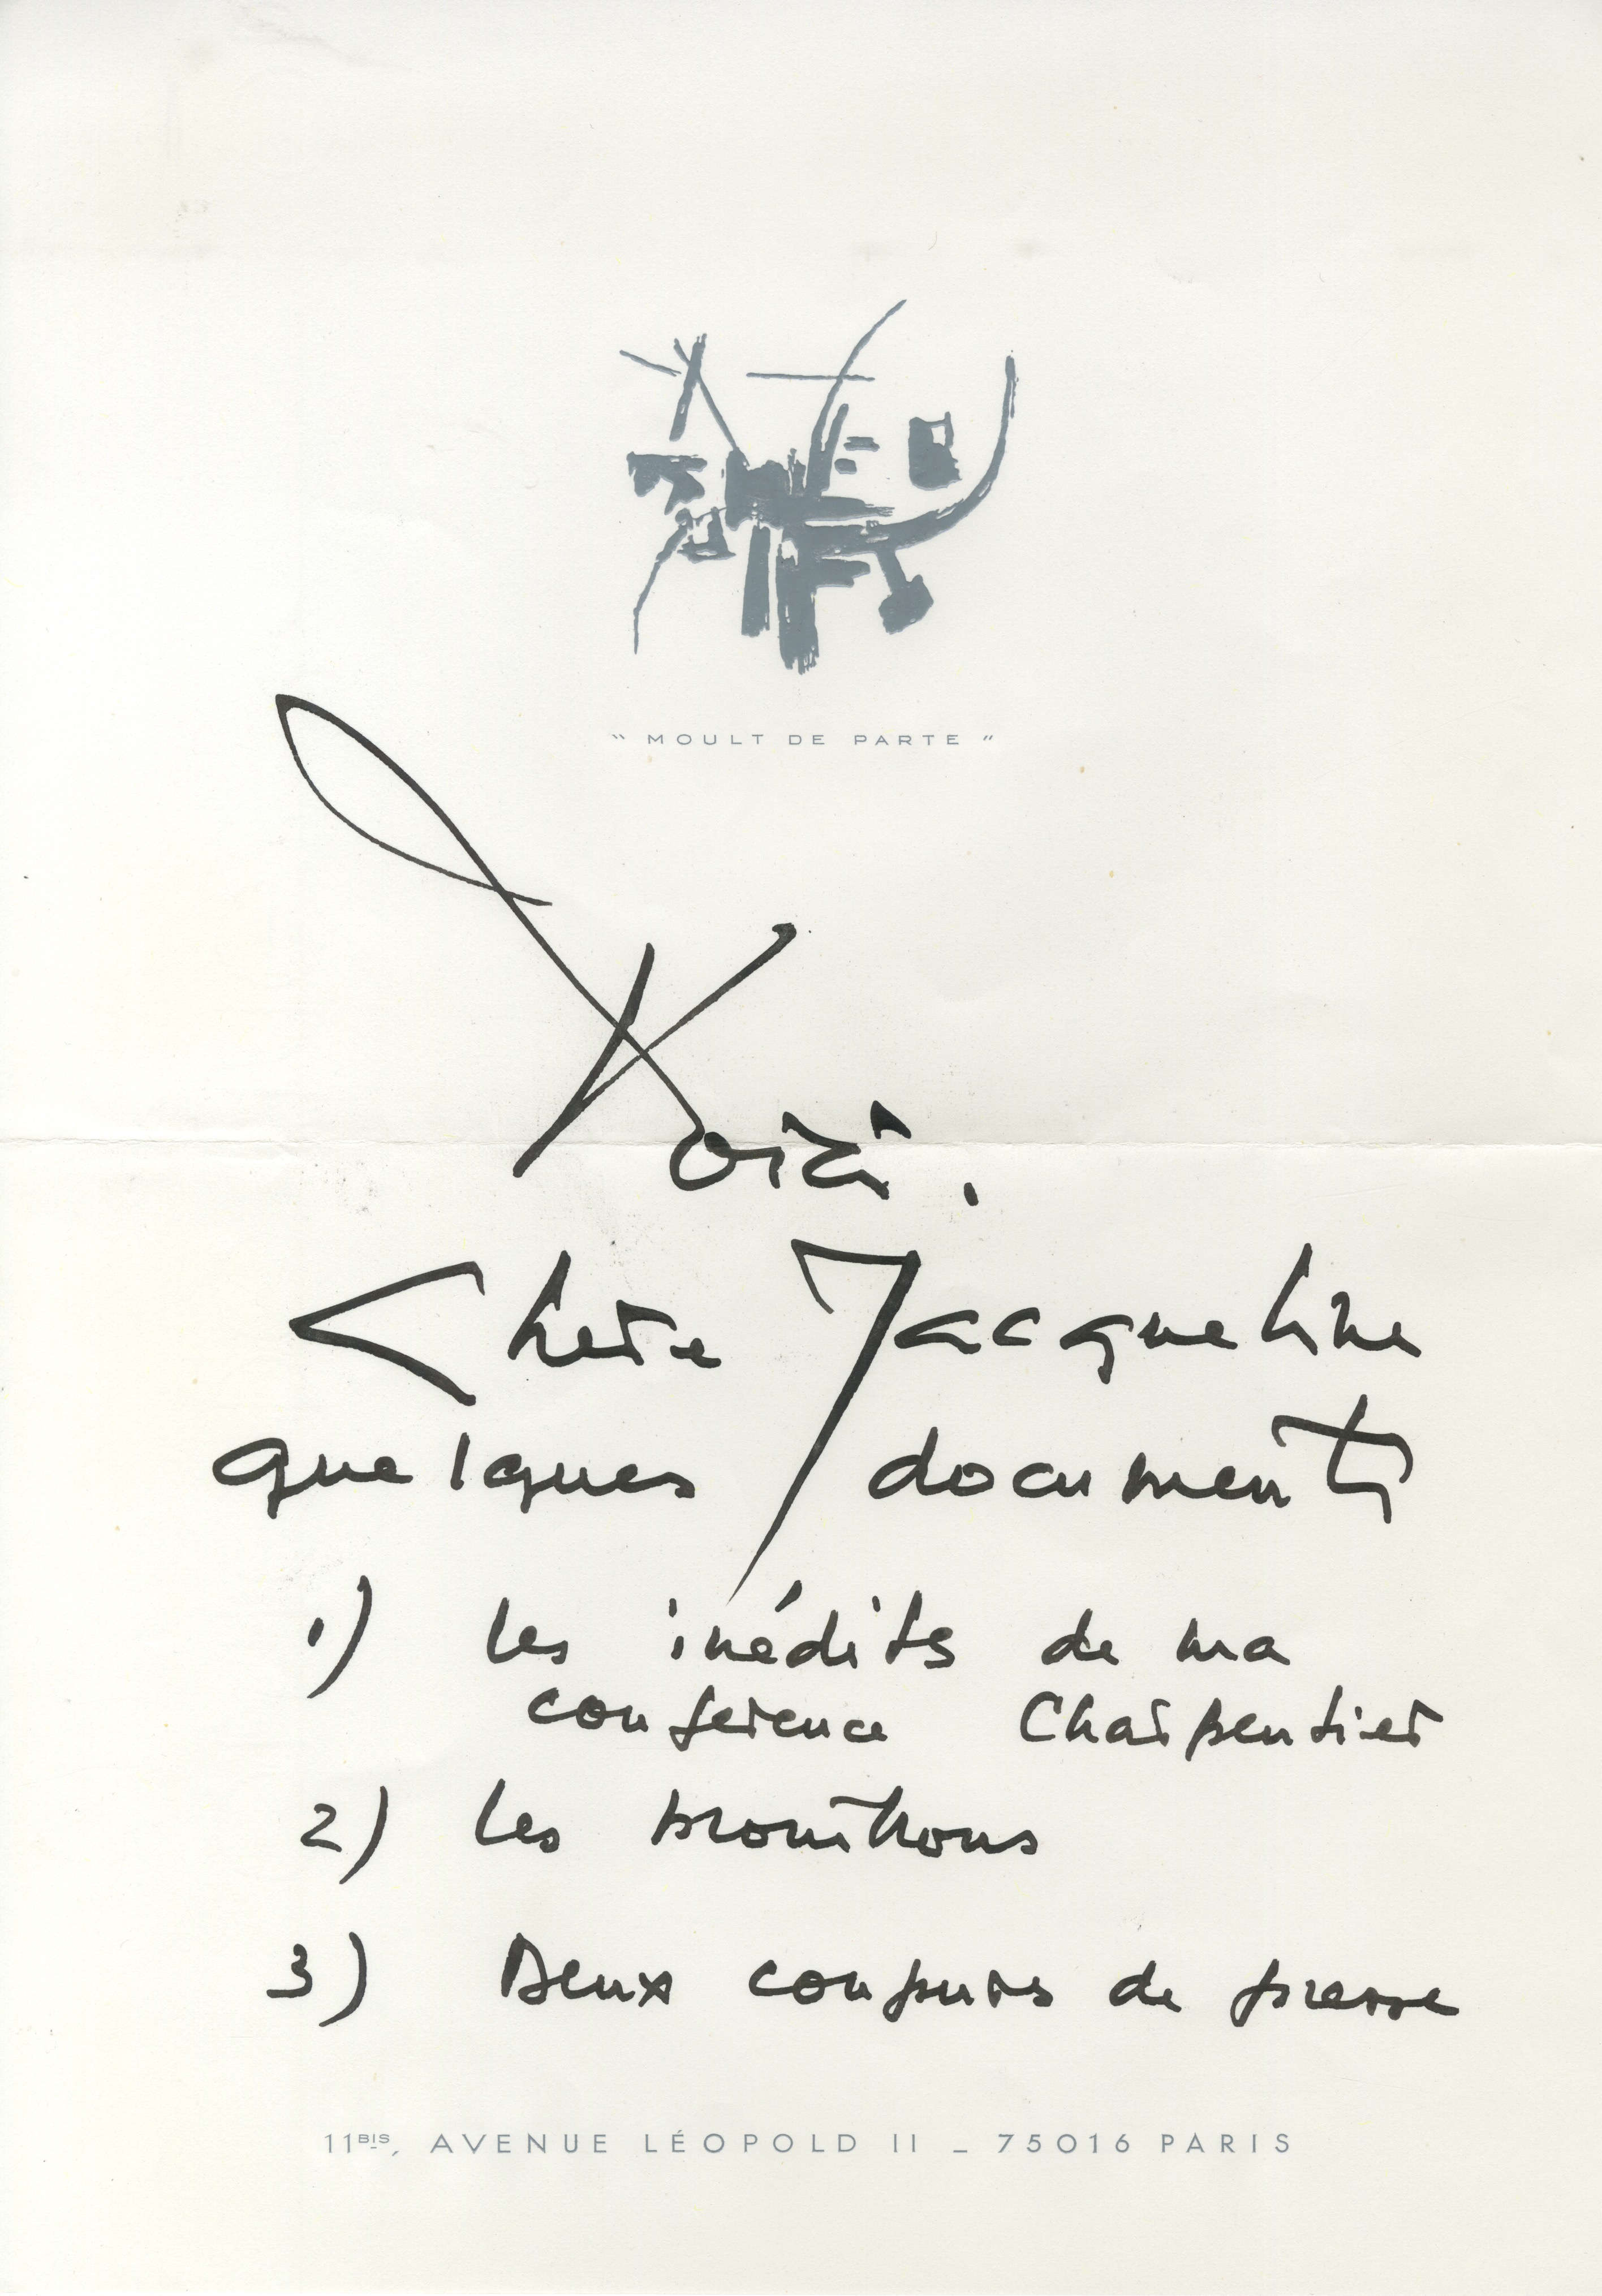 " MOULT DE PARTE "
Voici.
Chere Jacqueline
quelques documents
1) les inédits de ma
conference Charpentier
2) les
3) Deux coupures de presse
11BIS, AVENUE LÉOPOLD II _ 75016 PARIS